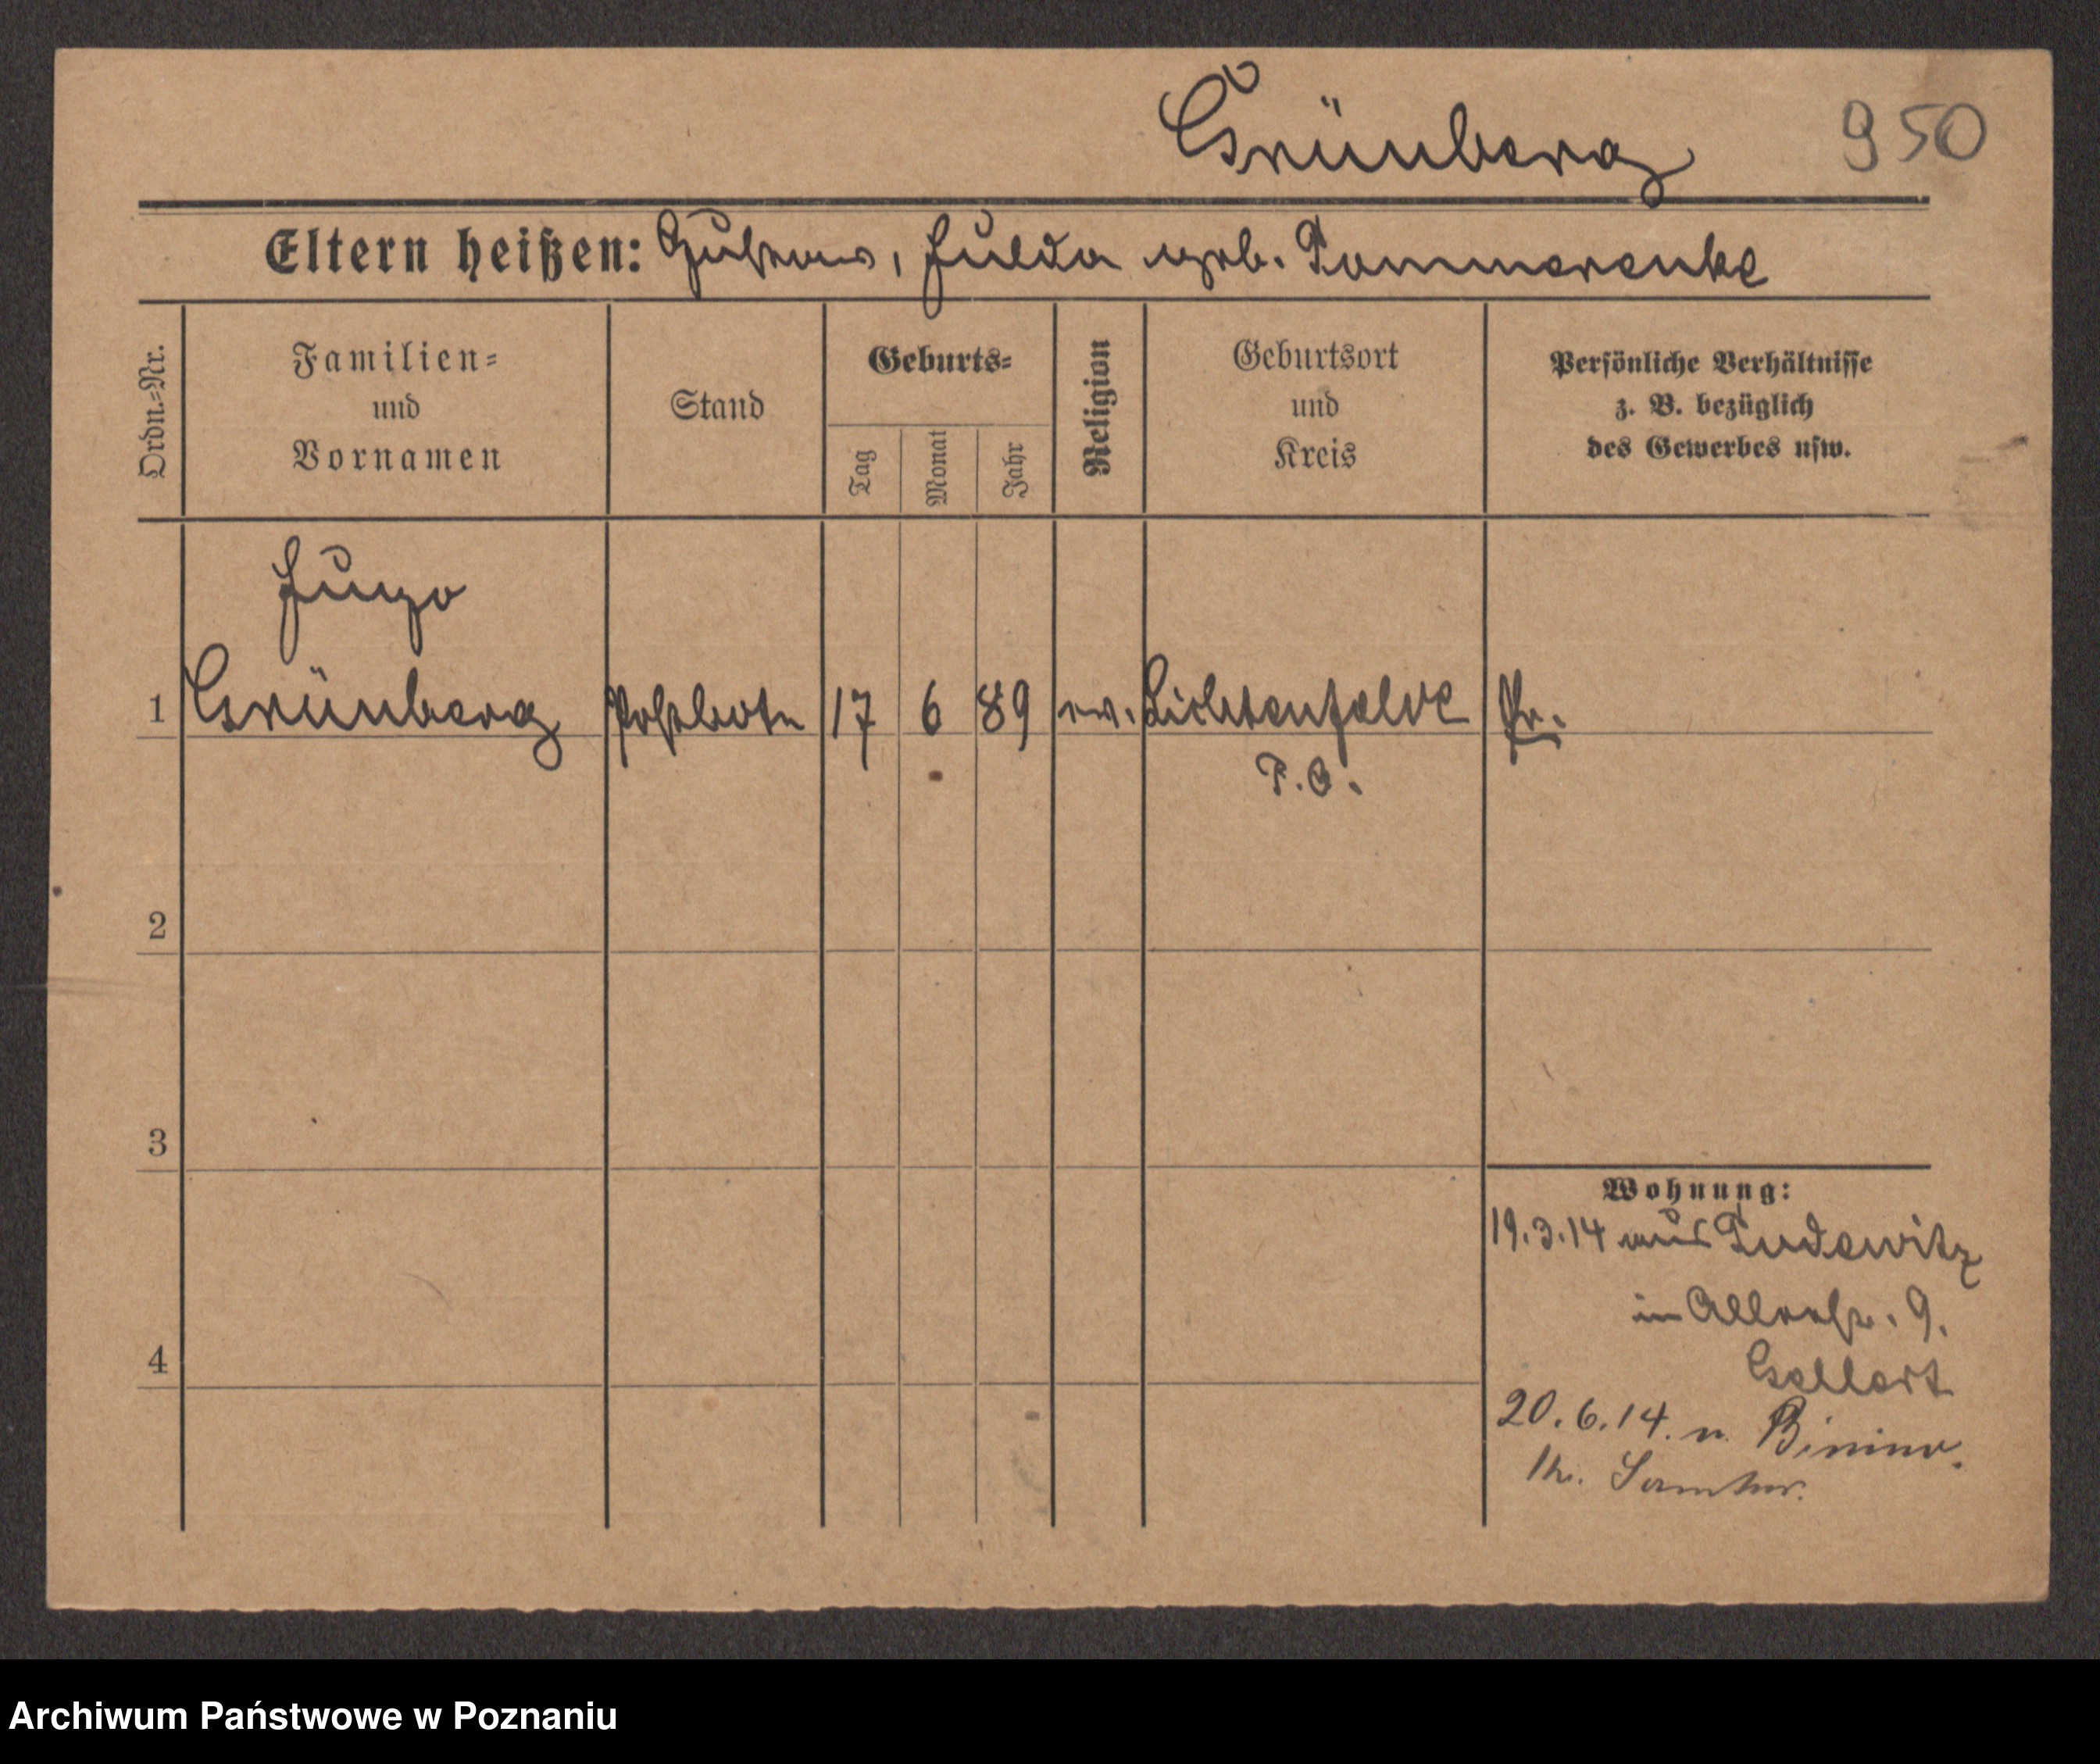 Grünberg 950
Eltern heißen: Gustav, Hulda geb. Pommerenke
Ordn.-Nr.
Familien-
und
Vornamen
Stand
Geburts-
Tag
Monat
Jahr
Religion
Geburtsort
und
Kreis
Persönliche Verhältnisse
z. B. bezüglich
des Gewerbes usw.
Hugo
1 Grünberg Postbote 17 6 89 ev. Lichtenfelde Pr.
P.O.
2
3
Wohnung:
19.3.14 aus Pudewitz
in 9.
Gellert
4
20.6.14. n. Binino.
Kr. Samter.
Archiwum Państwowe w Poznaniu